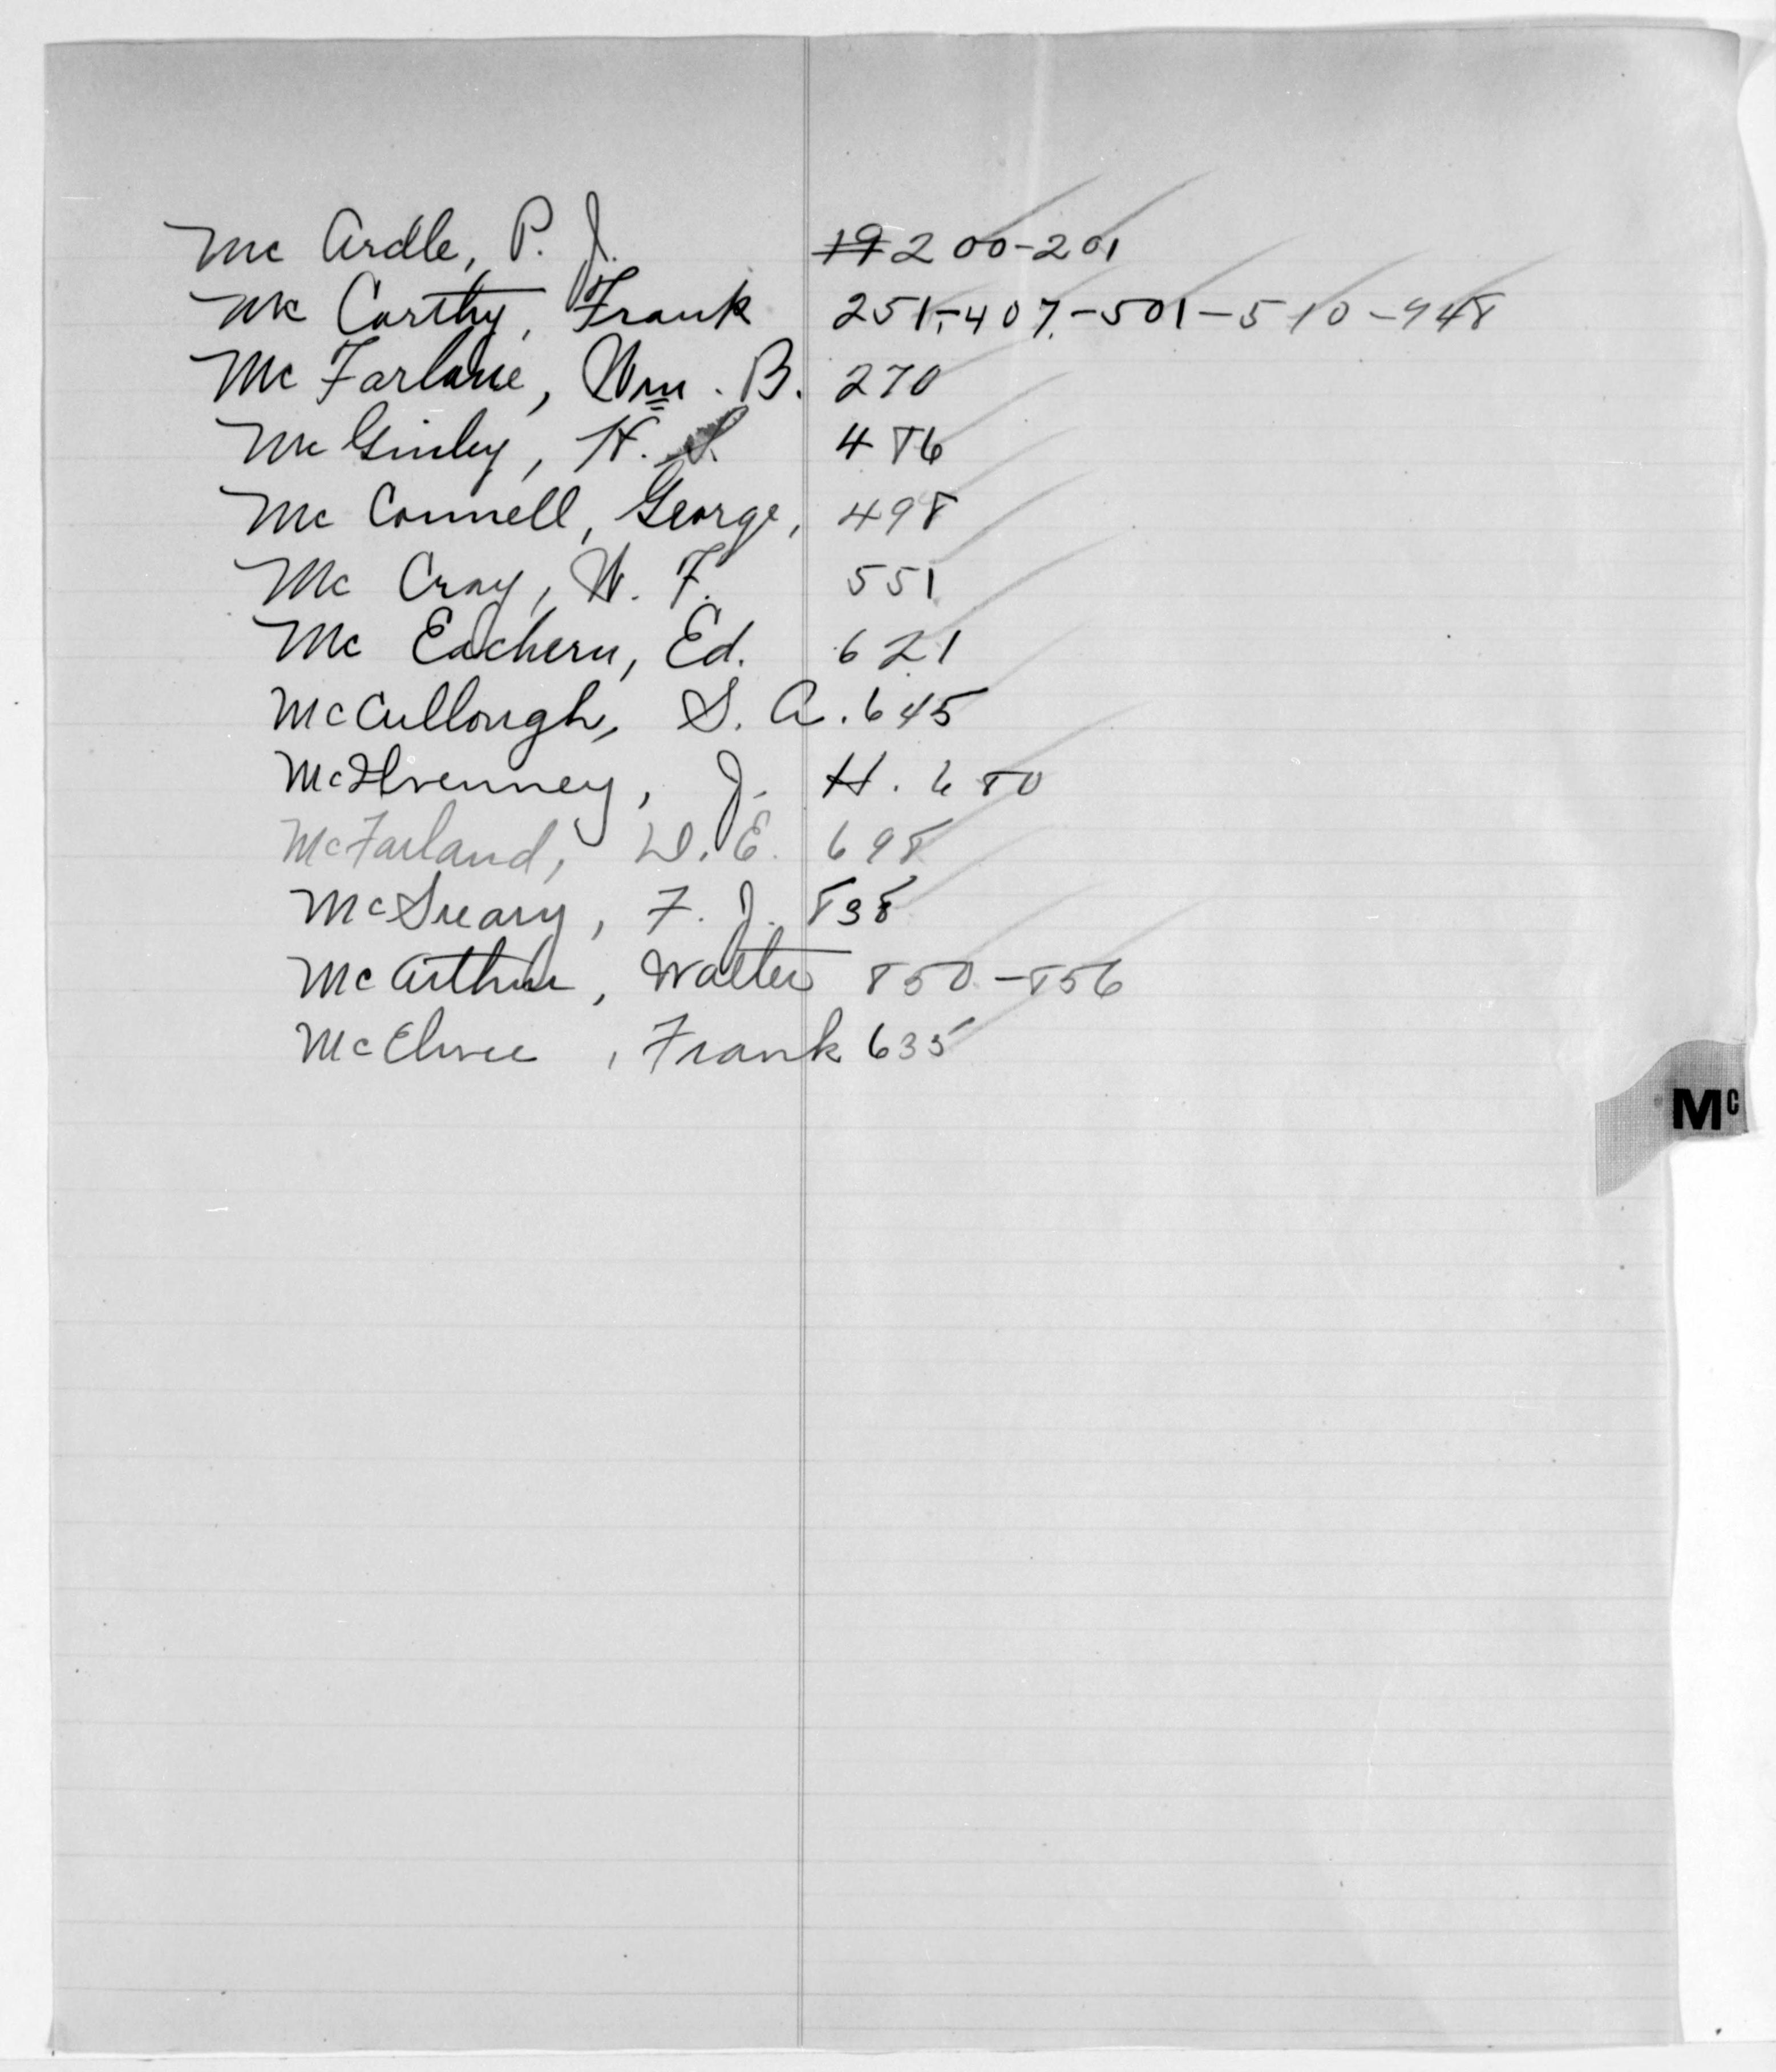 Mc Ardle, P. J. 19 200-201
Mc Carthy, Frank 251,-407,-501-510-948
Mc Farlane, Wm. B. 270
Mc Ginley, H. S. 486
Mc Connell, George, 498
Mc Cray, W. F. 551
Mc Eachern, Ed. 621
McCullough, S. A. 645
McIlvenney, J. H. 680
McFarland, W. E. 698
McSreary, F. J. 838
McArthur, Walter 850-856
McElwee, Frank 635
Mc